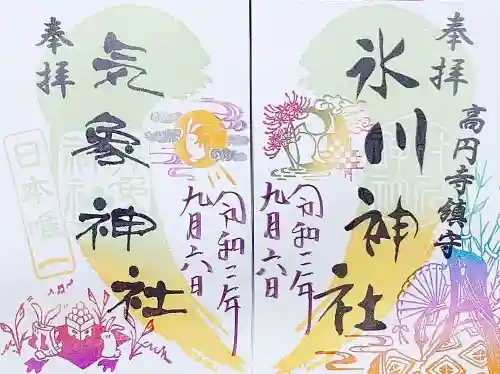 奉拝
高円寺鎮守
氷川神社
令和二年
九月六日
奉拝
気象神社
令和二年
九月六日
日本唯一